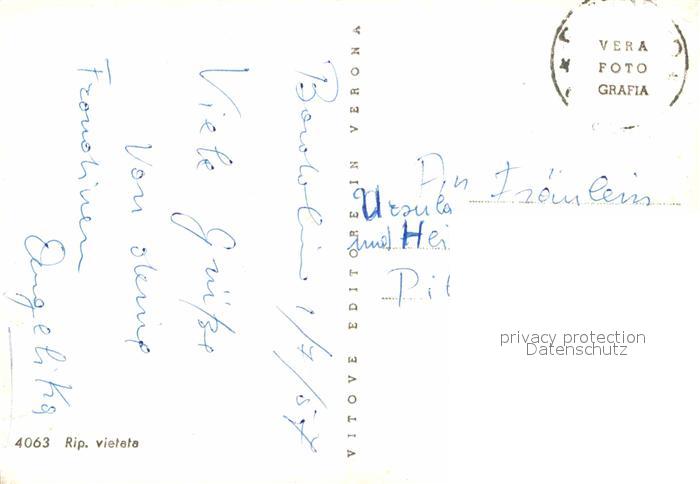 Bardolino 1/7/57
Viele Grüße
von deine
Freundinen
Angelika
VITOVE EDITORE IN VERONA
VERA
FOTO
GRAFIA
An Fräulein
Ursula
und Hei
Pit
privacy protection
Datenschutz
4063 Rip. vietata